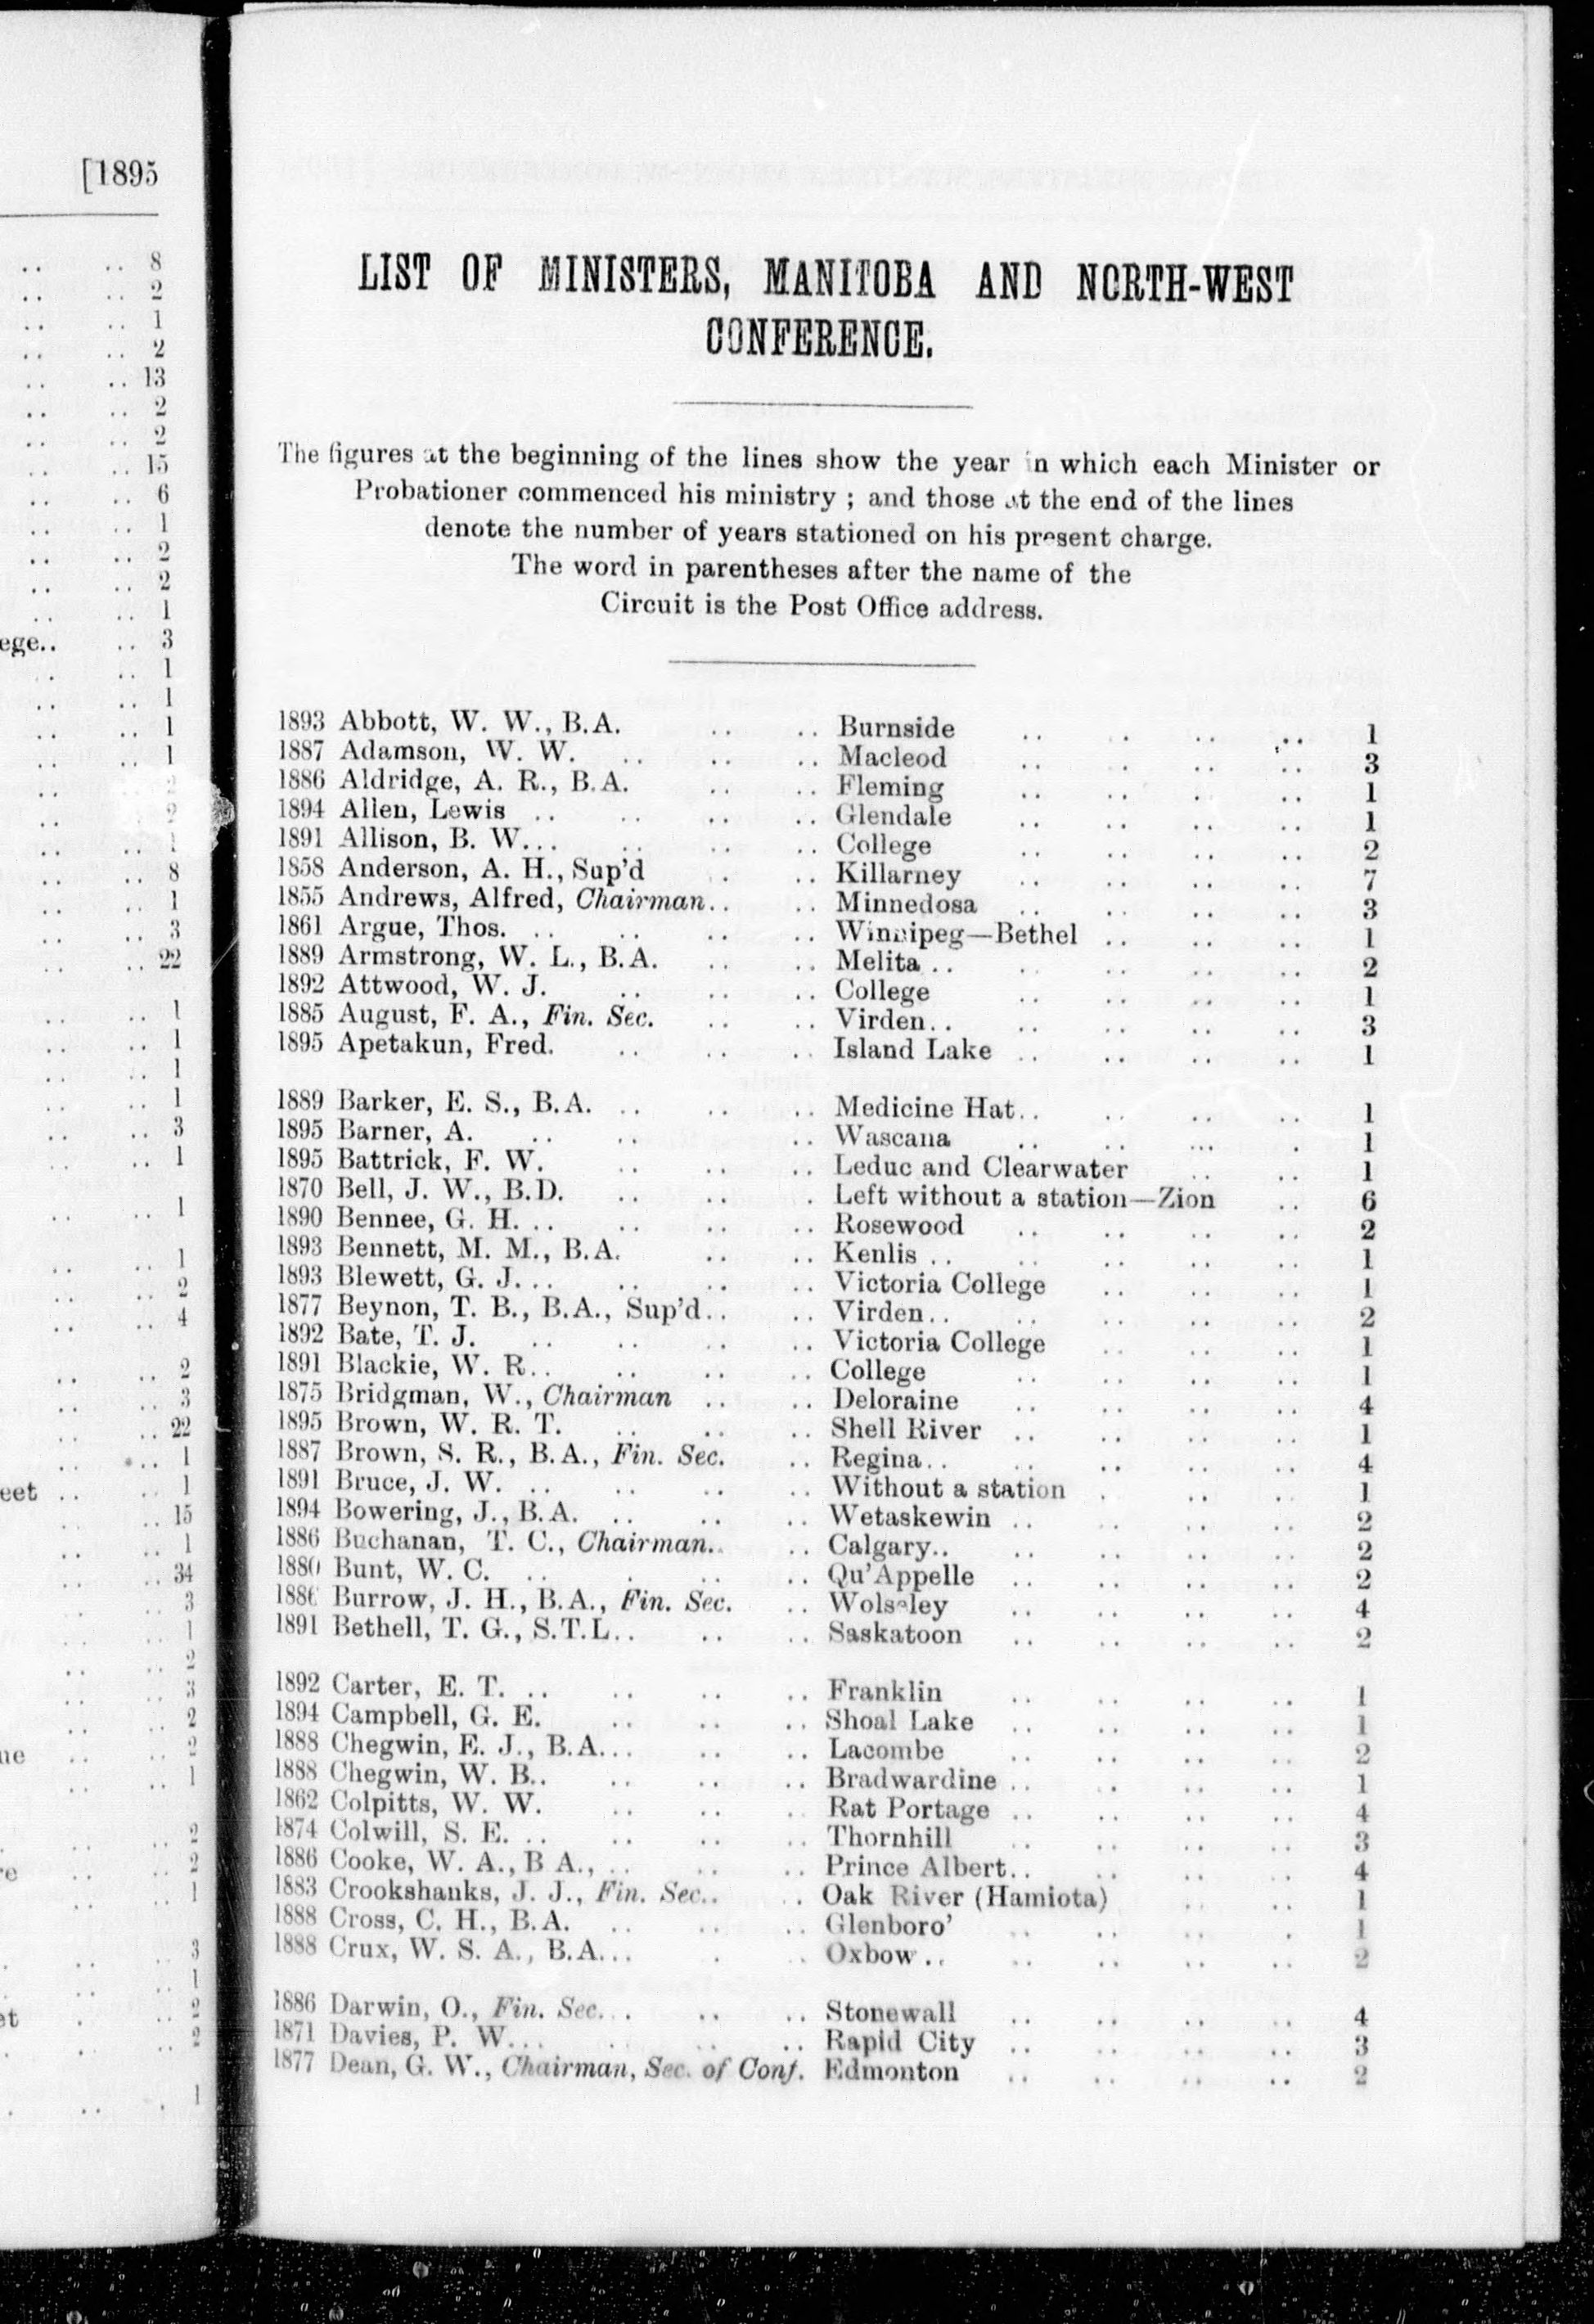 [1895
.. .. 8
.. .. 2
.. .. 1
.. .. 2
.. .. 13
.. .. 2
.. .. 2
.. .. 15
.. .. 6
.. .. 1
.. .. 2
.. .. 2
.. .. 1
ege.. .. 3
.. .. 1
.. .. 1
.. .. 1
.. .. 1
.. .. 2
.. .. 2
.. .. 1
.. .. 8
.. .. 1
.. .. 3
.. .. 22
.. .. 1
.. .. 1
.. .. 1
.. .. 1
.. .. 3
.. .. 1
.. .. 1
.. .. 1
.. .. 2
.. .. 4
.. .. 2
.. .. 3
.. .. 22
.. .. 1
eet .. .. 1
.. .. 15
.. .. 1
.. .. 34
.. .. 3
.. .. 1
.. .. 2
.. .. 3
.. .. 2
ne .. .. 2
.. .. 1
.. .. 2
re .. .. 2
.. .. 1
.. .. 3
.. .. 1
et . .. 2
.. .. 2
.. . 1
LIST OF MINISTERS, MANITOBA AND NORTH-WEST
CONFERENCE.
The figures at the beginning of the lines show the year in which each Minister or
Probationer commenced his ministry ; and those at the end of the lines
denote the number of years stationed on his present charge.
The word in parentheses after the name of the
Circuit is the Post Office address.
1893 Abbott, W. W., B.A. .. .. Burnside .. . .. .. 1
1887 Adamson, W. W. .. .. .. Macleod .. . .. .. 3
1886 Aldridge, A. R., B.A. .. .. Fleming .. .. . .. 1
1894 Allen, Lewis .. .. .. .. Glendale .. .. .. .. 1
1891 Allison, B. W... .. .. .. College .. .. .. .. 2
1858 Anderson, A. H., Sup'd .. .. Killarney .. .. .. .. 7
1855 Andrews, Alfred, Chairman.. .. Minnedosa .. .. .. .. 3
1861 Argue, Thos. .. .. .. .. Winnipeg—Bethel .. .. .. 1
1889 Armstrong, W. L., B.A. .. .. Melita .. .. .. .. .. 2
1892 Attwood, W. J. .. .. .. College .. .. .. .. 1
1885 August, F. A., Fin. Sec. .. .. Virden.. .. .. .. .. 3
1895 Apetakun, Fred. .. .. .. Island Lake .. .. .. .. 1
1889 Barker, E. S., B.A. .. .. .. Medicine Hat.. .. .. .. 1
1895 Barner, A. .. .. .. Wascana .. .. ... . 1
1895 Battrick, F. W. .. .. .. Leduc and Clearwater .. .. 1
1870 Bell, J. W., B.D. .. .. . Left without a station—Zion .. 6
1890 Bennee, G. H. .. .. .. .. Rosewood .. .. .. .. 2
1893 Bennett, M. M., B.A. .. .. Kenlis .. .. .. .. .. 1
1893 Blewett, G. J... .. .. .. Victoria College .. .. .. 1
1877 Beynon, T. B., B.A., Sup'd.. .. Virden.. .. .. .. .. 2
1892 Bate, T. J. .. .. .. .. Victoria College .. .. .. 1
1891 Blackie, W. R.. .. .. .. College .. .. .. .. 1
1875 Bridgman, W., Chairman .. .. Deloraine .. .. .. .. 4
1895 Brown, W. R. T. .. .. .. Shell River .. .. .. .. 1
1887 Brown, S. R., B.A., Fin. Sec. .. Regina.. .. .. .. .. 4
1891 Bruce, J. W. .. .. .. .. Without a station . .. .. 1
1894 Bowering, J., B.A. .. .. .. Wetaskewin .. .. .. .. 2
1886 Buchanan, T. C., Chairman.. .. Calgary.. .. .. .. .. 2
1880 Bunt, W. C. .. . .. .. Qu'Appelle .. .. .. .. 2
Burrow, J. H., B.A., Fin. Sec. .. Wolseley .. .. .. .. 4
1891 Bethell, T. G., S.T.L.. .. .. Saskatoon .. .. .. .. 2
1892 Carter, E. T. .. .. .. .. Franklin .. .. .. .. 1
1894 Campbell, G. E. .. .. .. Shoal Lake .. .. .. .. 1
1888 Chegwin, E. J., B.A... .. .. Lacombe .. .. .. .. 2
1888 Chegwin, W. B.. .. .. .. Bradwardine .. .. .. .. 1
1862 Colpitts, W. W. .. .. .. Rat Portage .. .. .. .. 4
1874 Colwill, S. E. .. .. .. .. Thornhill .. .. .. .. 3
1886 Cooke, W. A., B A., .. .. .. Prince Albert.. .. .. .. 4
1883 Crookshanks, J. J., Fin. Sec.. .. Oak River (Hamiota) .. .. 1
1888 Cross, C. H., B.A. .. .. .. Glenboro' .. .. .. . 1
1888 Crux, W. S. A., B.A... . .. Oxbow .. .. .. .. .. 2
1886 Darwin, O., Fin. Sec... .. .. Stonewall .. .. .. .. 4
1871 Davies, P. W... .. .. .. Rapid City .. .. .. .. 3
1877 Dean, G. W., Chairman, Sec. of Conf. Edmonton .. .. .. .. 2